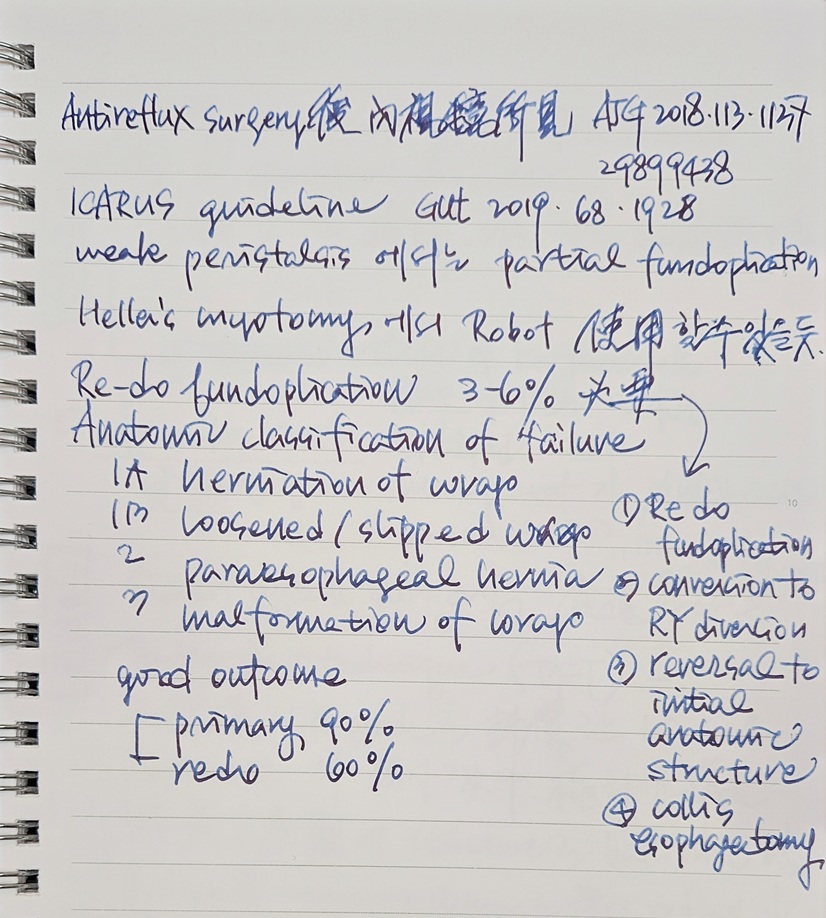 Antireflux surgery 後 內視鏡 所見 AJG 2018.113.1137
29899438
ICARUS guideline Gut 2019.68.1928
weak peristalsis 에서는 partial fundoplication
Heller's myotomy에서 Robot 使用할 수 있을 듯.
Re-do fundoplication 3-6% 必要
Anatomic classification of failure
1A herniation of wrap
1B loosened/slipped wrap
2 paraesophageal hernia
3 malformation of wrap
good outcome
primary 90%
redo 60%
① Re do
fundoplication
② conversion to
RY diversion
③ reversal to
initial
anatomic
structure
④ collis
esophagectomy
10